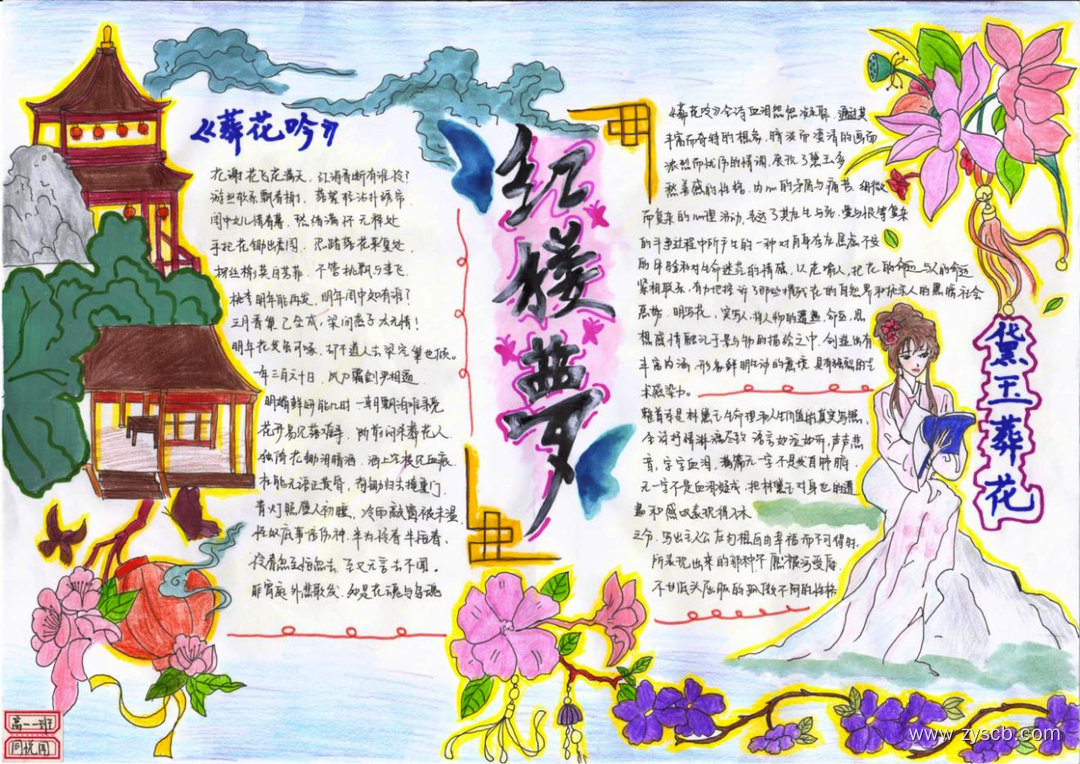 《葬花吟》
花谢花飞花满天，红消香断有谁怜？
游丝软系飘春榭，落絮轻沾扑绣帘
闺中女儿惜春暮，愁绪满怀无释处
手把花锄出绣闺，忍踏落花来复去
柳丝榆荚自芳菲，不管桃飘与李飞
桃李明年能再发，明年闺中知有谁？
三月香巢已垒成，梁间燕子太无情！
明年花发虽可啄，却不道人去梁空巢也倾。
一年三百六十日，风刀霜剑严相逼
明媚鲜妍能几时，一朝飘泊难寻觅
花开易见落难寻，阶前闷杀葬花人
独倚花锄泪暗洒，洒上空枝见血痕
杜鹃无语正黄昏，荷锄归去掩重门
青灯照壁人初睡，冷雨敲窗被未温
怪奴底事倍伤神，半为怜春半恼春
怜春忽至恼忽去，至又无言去不闻
昨宵庭外悲歌发，知是花魂与鸟魂
红楼梦
《葬花吟》全诗血泪怨怒凝聚，通过其
丰富而奇特的想象，暗淡而凄清的画面
浓烈而忧伤的情调，展示了黛玉多
愁善感的性格，内心的矛盾与痛苦，细微
而复杂的心理活动，表达了其在生与死，爱与恨等复杂
的斗争过程中所产生的一种对自身存在焦虑不安
的体验和对生命迷茫的情感，以花喻人，把花的命运与人的命运
紧相联系，有力地控诉了那些摧残花的自然界和扼杀人的黑暗社会
恶势，明写花，实写人，将人物的遭遇，命运，思
想感情融汇于景与物的描绘之中，创造出有
丰富内涵，形象鲜明生动的意境，具有强烈的艺
术感染力。
整首诗是林黛玉生命理和人生价值的真实写照，
全诗抒情淋漓尽致，语言如泣如诉，声声悲
音，字字血泪，满篇无一字不是发自肺腑，
无一字不是血泪凝成，把林黛玉对身世的遭
遇和感叹表现得入木
三分，写出主人公在幻想自由幸福而不可得时，
所表现出来的那种不愿受辱
不甘低头屈服的孤傲不阿的性格
黛玉葬花
高一一班
www.zyscb.com